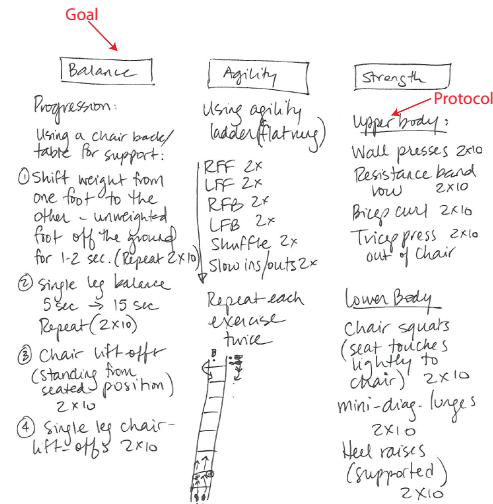 Goal
Balance
Progression:
Using a chair back/
table for support:
① Shift weight from
one foot to the
other - unweighted
foot off the ground
for 1-2 sec. (Repeat 2x10)
② Single leg balance
5 sec → 15 sec
Repeat (2x10)
③ Chair lift-offs
(standing from
seated position)
2x10
④ Single leg chair-
lift-offs 2x10
Agility
Using agility
ladder (flat rung)
RFF 2x
LFF 2x
RFB 2x
LFB 2x
Shuffle 2x
Slow ins/outs 2x
Repeat each
exercise
twice
Strength
Protocol
Upper body:
Wall presses 2x10
Resistance band
row 2x10
Bicep curl 2x10
Tricep press 2x10
out of chair
Lower Body
Chair squats
(seat touches
lightly to
chair) 2x10
mini-diag. lunges
2x10
Heel raises
(supported)
2x10